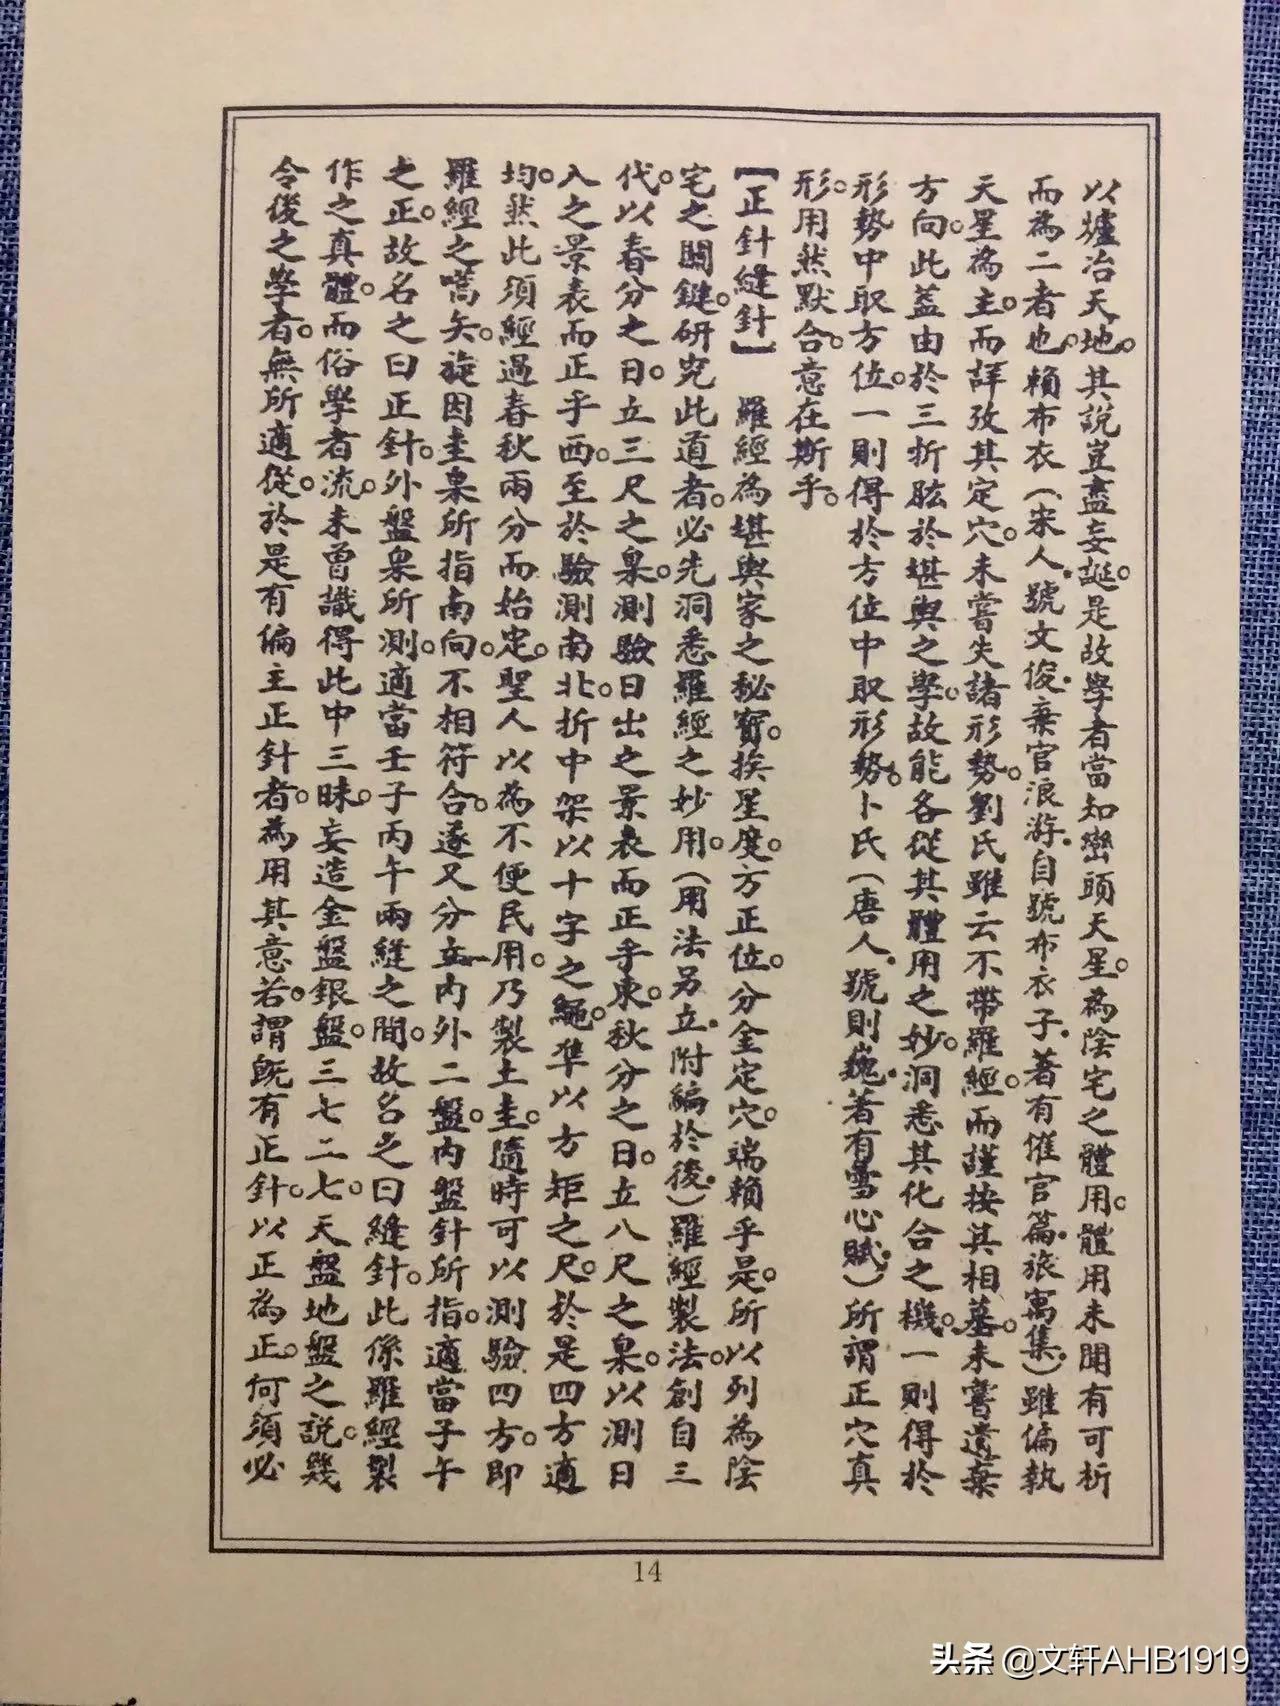 以壚冶天地。其說豈盡妄誕。是故學者當知巒頭天星。為陰宅之體用。體用未聞有可析
而為二者也。賴布衣(宋人。號文俊。棄官浪游。自號布衣子。著有催官篇。旅寓集。)雖偏執
天星為主。而詳攷其定穴。未嘗失諸形勢。劉氏雖云不帶羅經。而謹按其相墓。未嘗遺棄
方向。此蓋由於三折肱於堪輿之學。故能各從其體用之妙。洞悉其化合之機。一則得於
形勢中取方位。一則得於方位中取形勢。卜氏(唐人。號則巍。著有雪心賦。)所謂正穴真
形。用然默合。意在斯乎。
【正針縫針】 羅經為堪輿家之秘寶。挨星度。方正位。分金定穴。端賴乎是。所以列為陰
宅之關鍵。研究此道者。必先洞悉羅經之妙用。(用法另立。附編於後。)羅經製法。創自三
代。以春分之日。立三尺之臬。測驗日出之景表而正乎東。秋分之日。立八尺之臬。以測日
入之景表而正乎西。至於驗測南北。折中架以十字之繩。準以方矩之尺。於是四方適
均。然此須經過春秋兩分而始定。聖人以為不便民用。乃製土圭。隨時可以測驗四方。即
羅經之嚆矢。旋因圭臬所指南向。不相符合。遂又分立內外二盤。內盤針所指。適當子午
之正。故名之曰正針。外盤臬所測。適當壬子丙午兩縫之間。故名之曰縫針。此係羅經製
作之真體。而俗學者流。未曾識得此中三昧。妄造金盤銀盤。三七二七。天盤地盤之說。幾
令後之學者。無所適從。於是有偏主正針者。為用其意。若謂既有正針。以正為正。何須必
14
头条 @文轩AHB1919